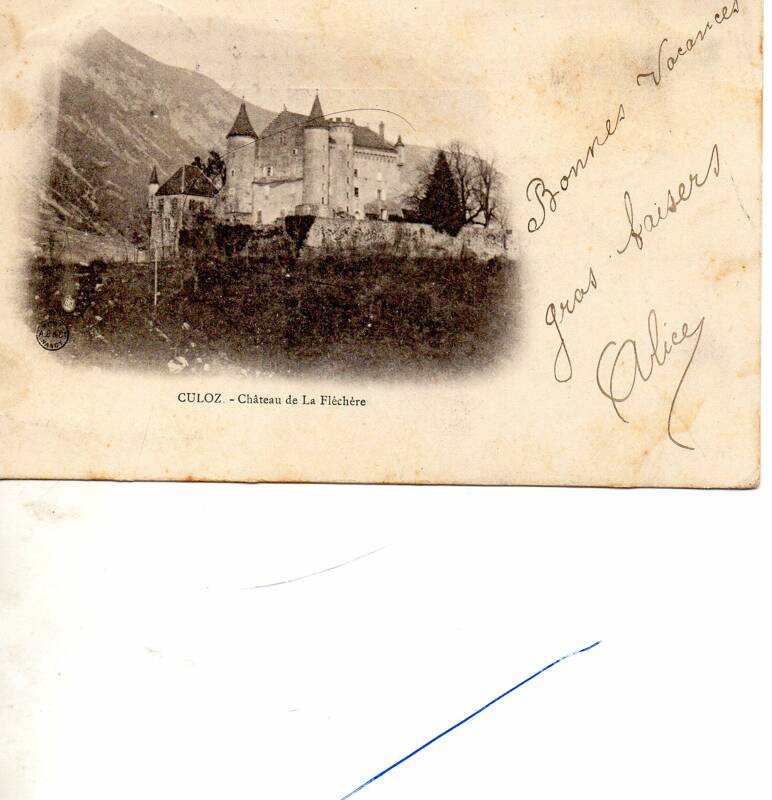 Bonnes Vacances
gros baisers
Alice
CULOZ. - Château de La Fléchère